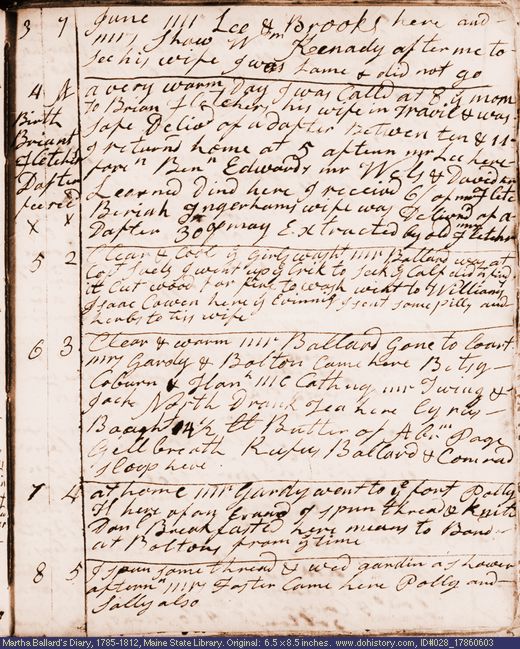 3 7 June 1st Lee & Brooks here and
mrs Shaw Wm Kenady after me to
See his wife I was Lame & did not go
4 A a very warm Day I was Calld at 8 ye morn
Birth to Brian Fletchers his wife in Travil & was
Briant Safe Delivd of a dafter Between ten & 11
Fletchers I returnd home at 5 aftern mr Lee here
Dafter forenn Benn Edwards mr & David
Learned Dind here I receivd 6/ of mr Fletc
X X Beriah Ingerhams wife was Deliverd of a
Dafter 30th of may Extracted by old mrs Fletcher
5 2 Clear & Cool ye girls washt mr Ballard was at
I went up ye Crik to Seek ye Calf did not find
it Cut wood for fire to wash went to Williams
Isaac Cowen here ye Evinning I sent some pills and
herbs to his wife
6 3 Clear & warm mr Ballard gone to Court
mrs Gardy & Bolton Came here Betsy
Coburn & Hanh mc Cathug mr Twing &
Jack North Drank Tea here Cyrus
Baught 14 1/2 lb Butter of Abrm Page
Gellbreath Rufus Ballard & Comrad
Sleep here
7 4 at home mrs Gardy went to ye fort Polly
here of an Errand of spun thread & Knit
Dan Breakfasted here means to Board
at Boltons from ys time
8 5 I spun some thread & wed gardin a shower
aftern mrs Foster Came here Polly and
Sally also
Martha Ballard's Diary, 1785-1812, Maine State Library. Original: 6.5 x 8.5 inches. www.dohistory.com, ID#028_17860603